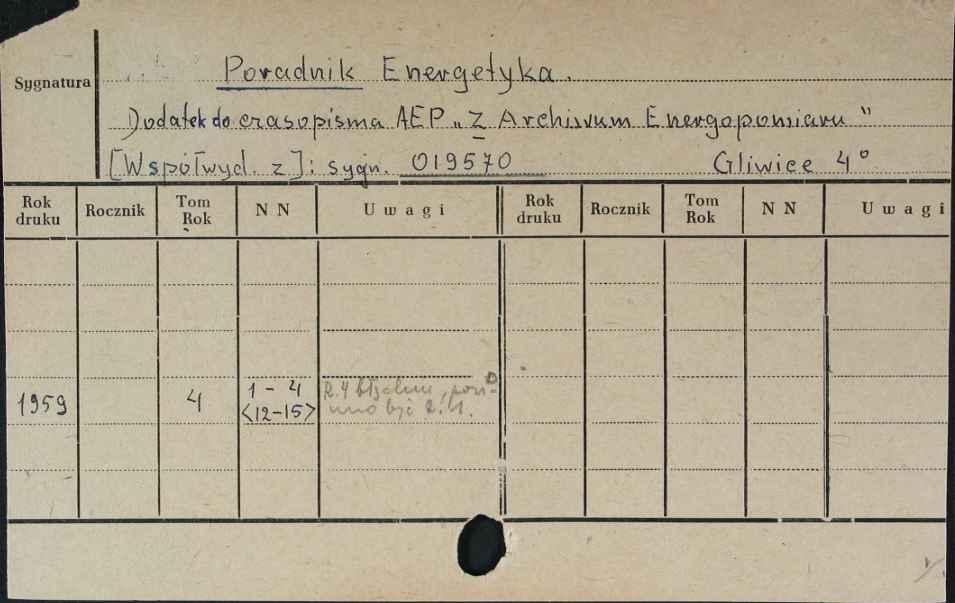 Sygnatura
Poradnik Energetyka.
Dodatek do czasopisma AEP „Z Archiwum Energopomiaru"
[Współwyd. z]: sygn. 019570 Gliwice 4°
Rok druku Rocznik Tom Rok N N Uwagi Rok druku Rocznik Tom Rok N N Uwagi
1959 4 1-4 R. 4 błędnie, powin-
<12-15> no być R.